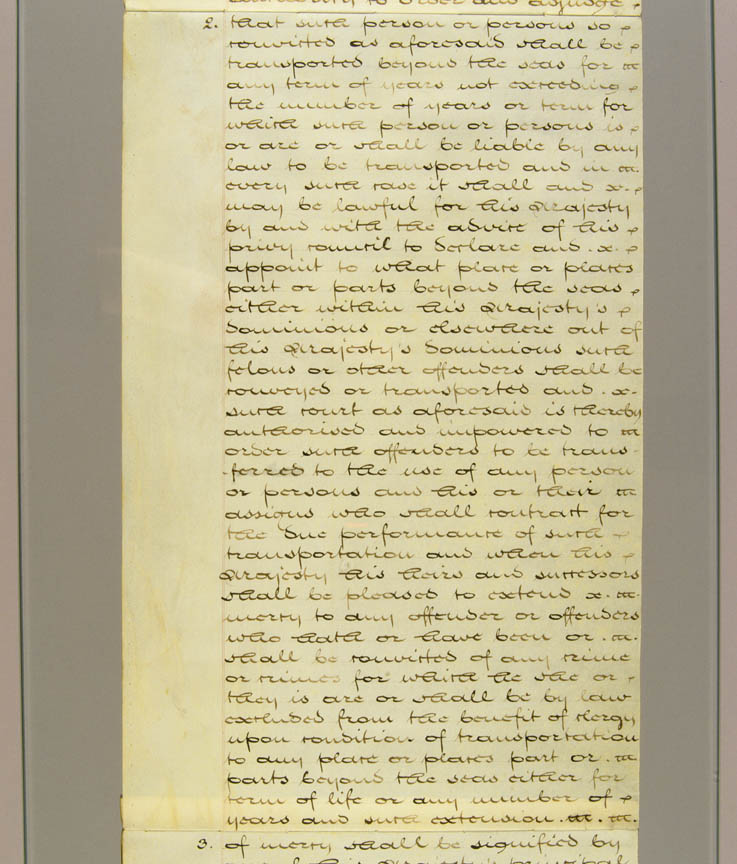 authority to order and adjudge
2. that such person or persons so
convicted as aforesaid shall be
transported beyond the seas for
any term of years not exceeding
the number of years or term for
which such person or persons is
or are or shall be liable by any
law to be transported and in
every such case it shall and
may be lawful for his Majesty
by and with the advice of his
privy council to declare and
appoint to what place or places
part or parts beyond the seas
either within his Majesty's
Dominions or elsewhere out of
his Majesty's Dominions such
felons or other offenders shall be
conveyed or transported and
such court as aforesaid is thereby
authorised and impowered to
order such offenders to be trans-
-ferred to the use of any person
or persons and his or their
assigns who shall contract for
the due performance of such
transportation and when his
Majesty his heirs and successors
shall be pleased to extend
mercy to any offender or offenders
who hath or have been or
shall be convicted of any crime
or crimes for which he she or
they is are or shall be by law
excluded from the benefit of clergy
upon condition of transportation
to any place or places part or
parts beyond the seas either for
term of life or any number of
years and such extension
3. of mercy shall be signified by
Majesty's principal